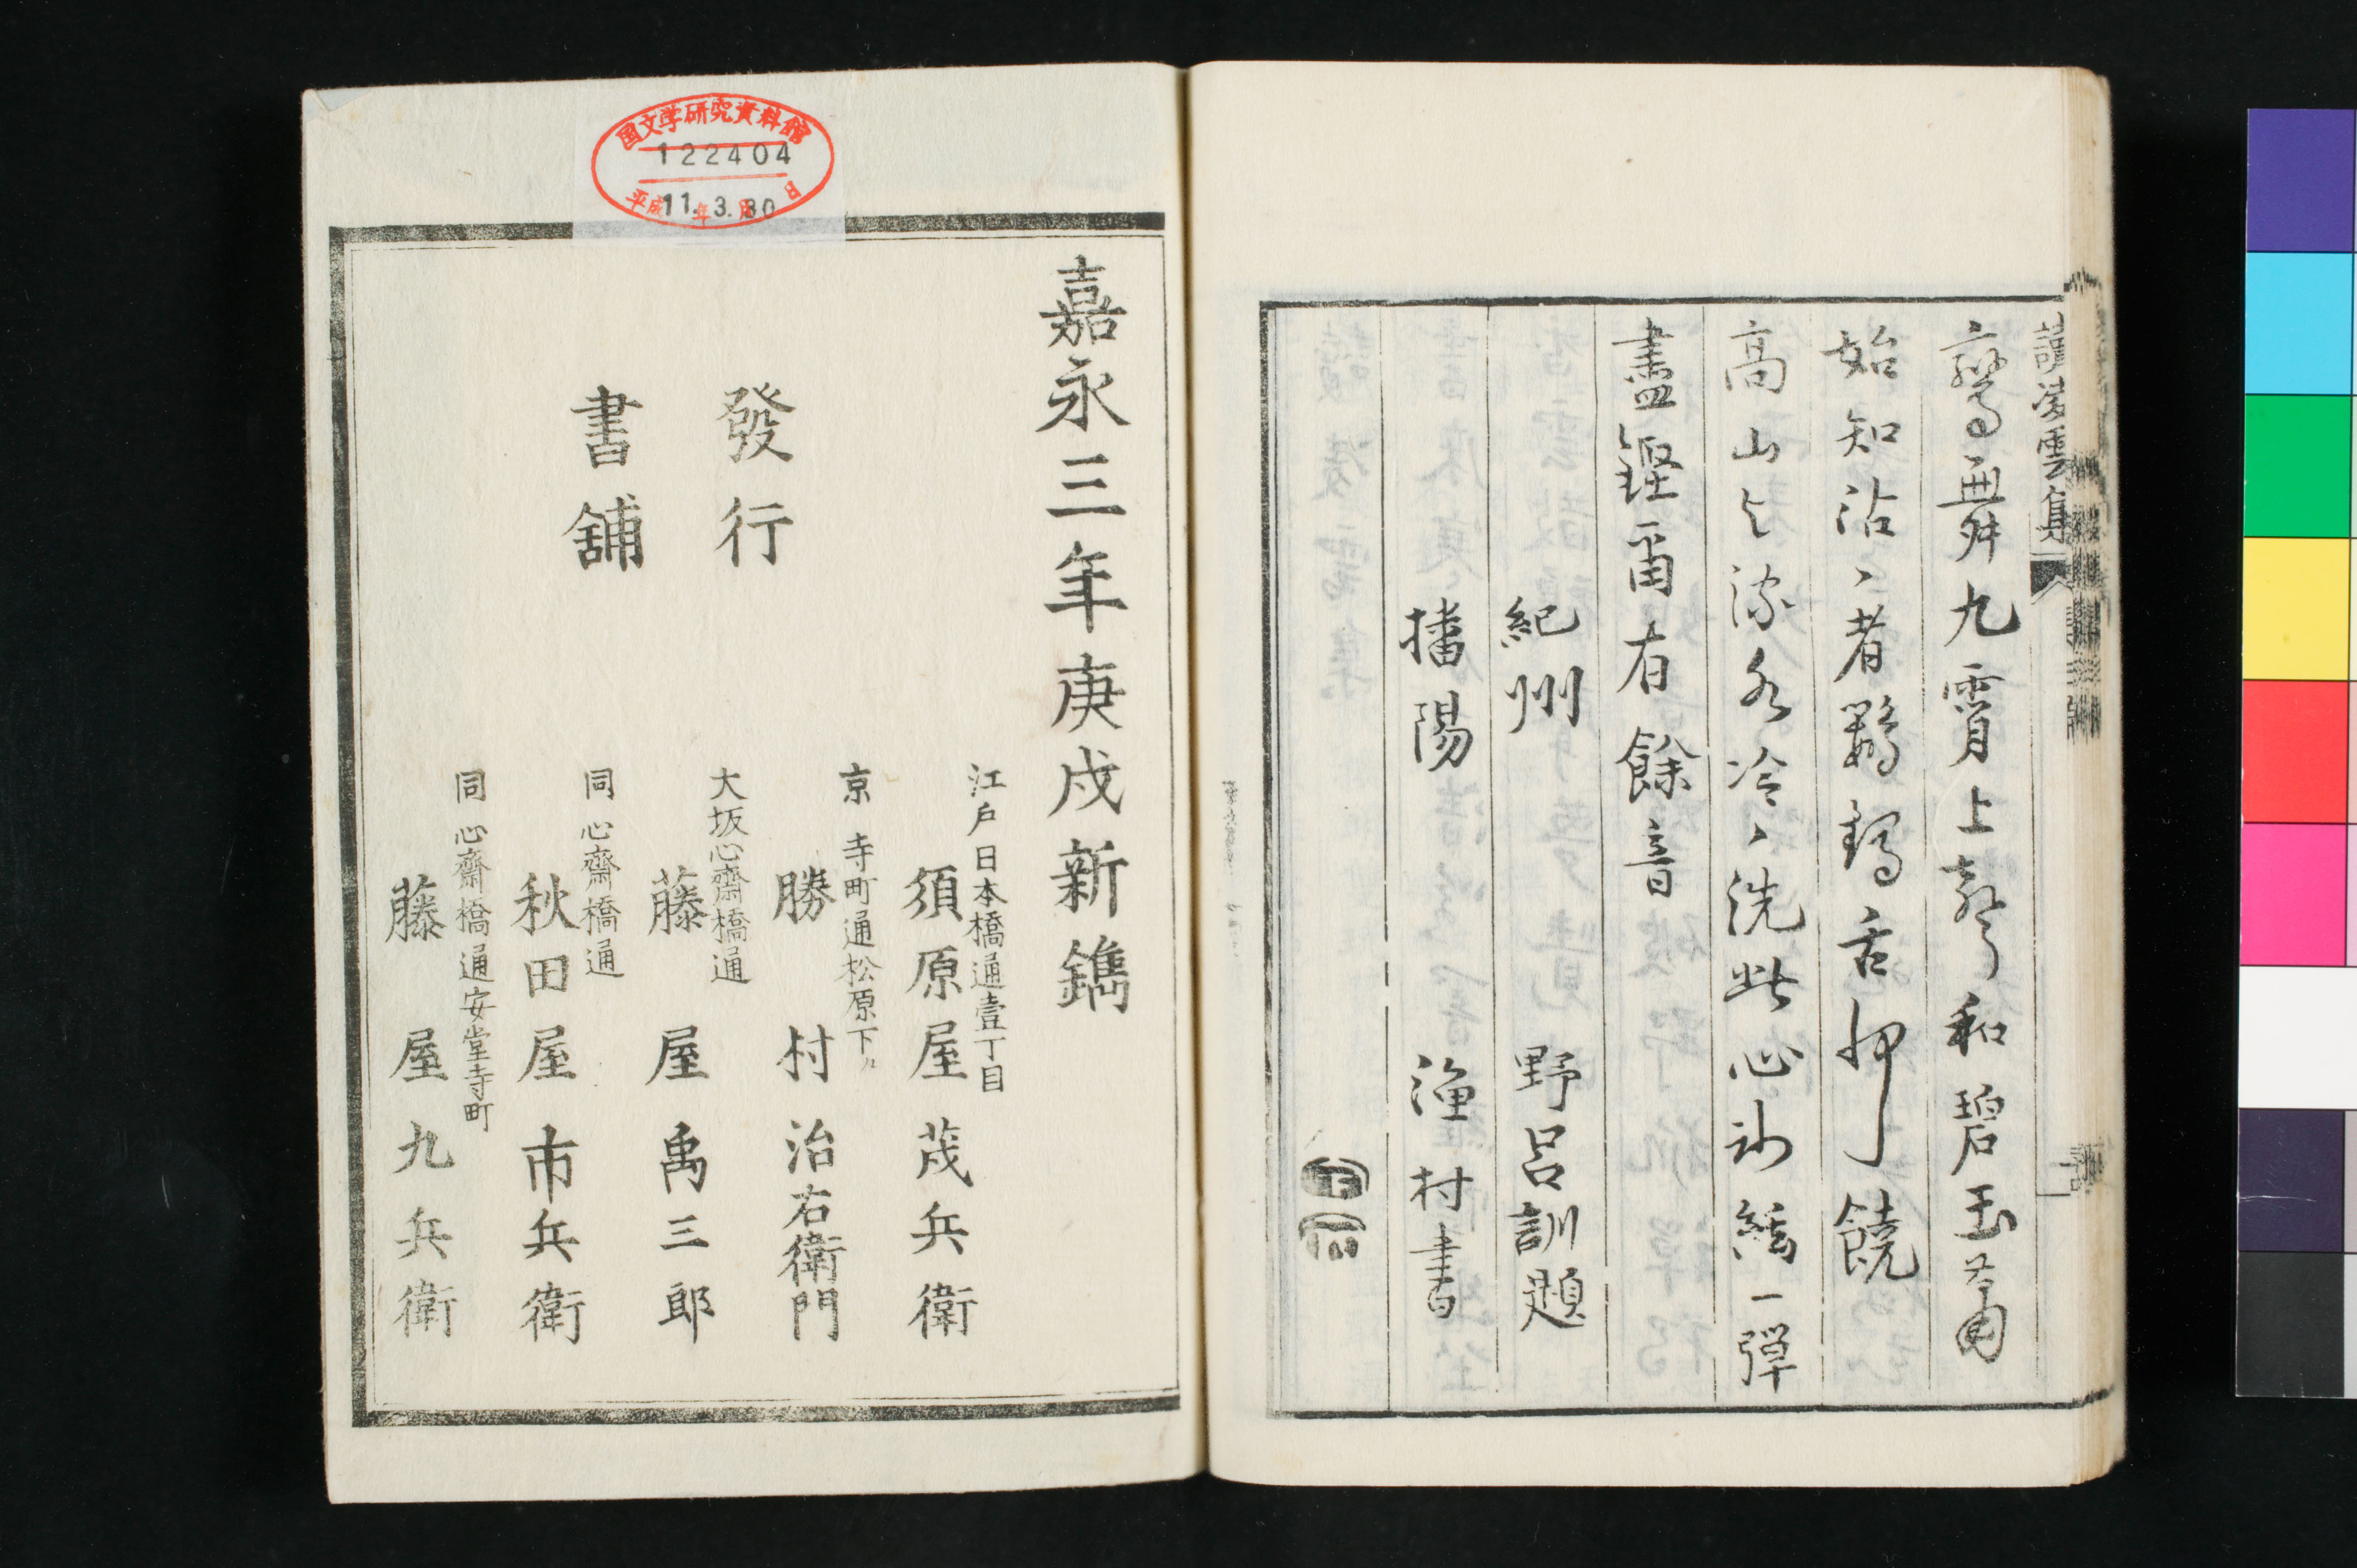 凌雲集
鸞舞九霄上聲和碧玉簫
始知沾〻者鸚鵡舌饒
高山与流水冷〻洗此心絃一彈
盡鏗爾有餘音
紀州 野呂訓題
播陽 村書
国文学研究資料館
122404
平成11年3月30日
嘉永三年庚戌新鐫
發行
書舗
江戸日本橋通壹丁目
須原屋茂兵衛
京寺町通松原下ル
勝村治右衛門
大坂心齋橋通
藤屋禹三郎
同心齋橋通
秋田屋市兵衛
同心齋橋通安堂寺町
藤屋九兵衛